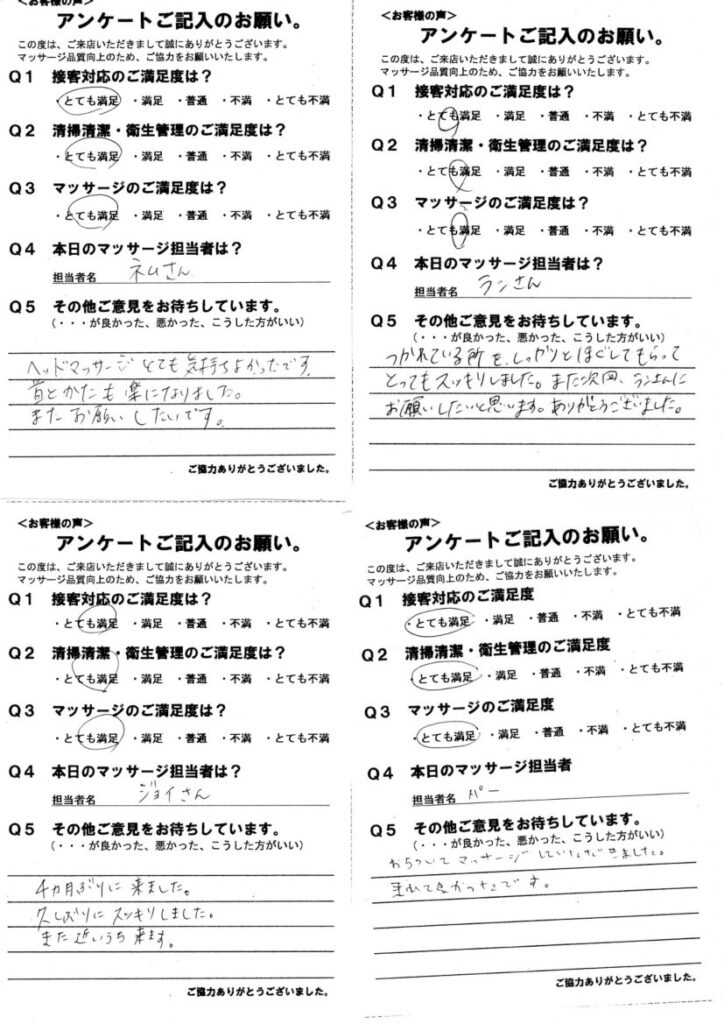 <お客様の声>
アンケートご記入のお願い。
この度は、ご来店いただきまして誠にありがとうございます。
マッサージ品質向上のため、ご協力をお願いいたします。
Q1 接客対応のご満足度は？
・とても満足 ・満足 ・普通 ・不満 ・とても不満
Q2 清掃清潔・衛生管理のご満足度は？
・とても満足 ・満足 ・普通 ・不満 ・とても不満
Q3 マッサージのご満足度は？
・とても満足 ・満足 ・普通 ・不満 ・とても不満
Q4 本日のマッサージ担当者は？
担当者名 ネムさん
Q5 その他ご意見をお待ちしています。
（・・・が良かった、悪かった、こうした方がいい）
ヘッドマッサージ とても気持ちよかったです。
首とかたも楽になりました。
またお願いしたいです。
ご協力ありがとうございました。
<お客様の声>
アンケートご記入のお願い。
この度は、ご来店いただきまして誠にありがとうございます。
マッサージ品質向上のため、ご協力をお願いいたします。
Q1 接客対応のご満足度は？
・とても満足 ・満足 ・普通 ・不満 ・とても不満
Q2 清掃清潔・衛生管理のご満足度は？
・とても満足 ・満足 ・普通 ・不満 ・とても不満
Q3 マッサージのご満足度は？
・とても満足 ・満足 ・普通 ・不満 ・とても不満
Q4 本日のマッサージ担当者は？
担当者名 ランさん
Q5 その他ご意見をお待ちしています。
（・・・が良かった、悪かった、こうした方がいい）
つかれている所を、しっかりとほぐしてもらって
とってもスッキリしました。また次回、ランさんに
お願いしたいと思います。ありがとうございました。
ご協力ありがとうございました。
<お客様の声>
アンケートご記入のお願い。
この度は、ご来店いただきまして誠にありがとうございます。
マッサージ品質向上のため、ご協力をお願いいたします。
Q1 接客対応のご満足度は？
・とても満足 ・満足 ・普通 ・不満 ・とても不満
Q2 清掃清潔・衛生管理のご満足度は？
・とても満足 ・満足 ・普通 ・不満 ・とても不満
Q3 マッサージのご満足度は？
・とても満足 ・満足 ・普通 ・不満 ・とても不満
Q4 本日のマッサージ担当者は？
担当者名 ジョイさん
Q5 その他ご意見をお待ちしています。
（・・・が良かった、悪かった、こうした方がいい）
4カ月ぶりに来ました。
久しぶりにスッキリしました。
また近いうち来ます。
ご協力ありがとうございました。
<お客様の声>
アンケートご記入のお願い。
この度は、ご来店いただきまして誠にありがとうございます。
マッサージ品質向上のため、ご協力をお願いいたします。
Q1 接客対応のご満足度
・とても満足 ・満足 ・普通 ・不満 ・とても不満
Q2 清掃清潔・衛生管理のご満足度
・とても満足 ・満足 ・普通 ・不満 ・とても不満
Q3 マッサージのご満足度
・とても満足 ・満足 ・普通 ・不満 ・とても不満
Q4 本日のマッサージ担当者
担当者名 パー
Q5 その他ご意見をお待ちしています。
（・・・が良かった、悪かった、こうした方がいい）
おちついてマッサージしていただきました。
来れて良かったです。
ご協力ありがとうございました。